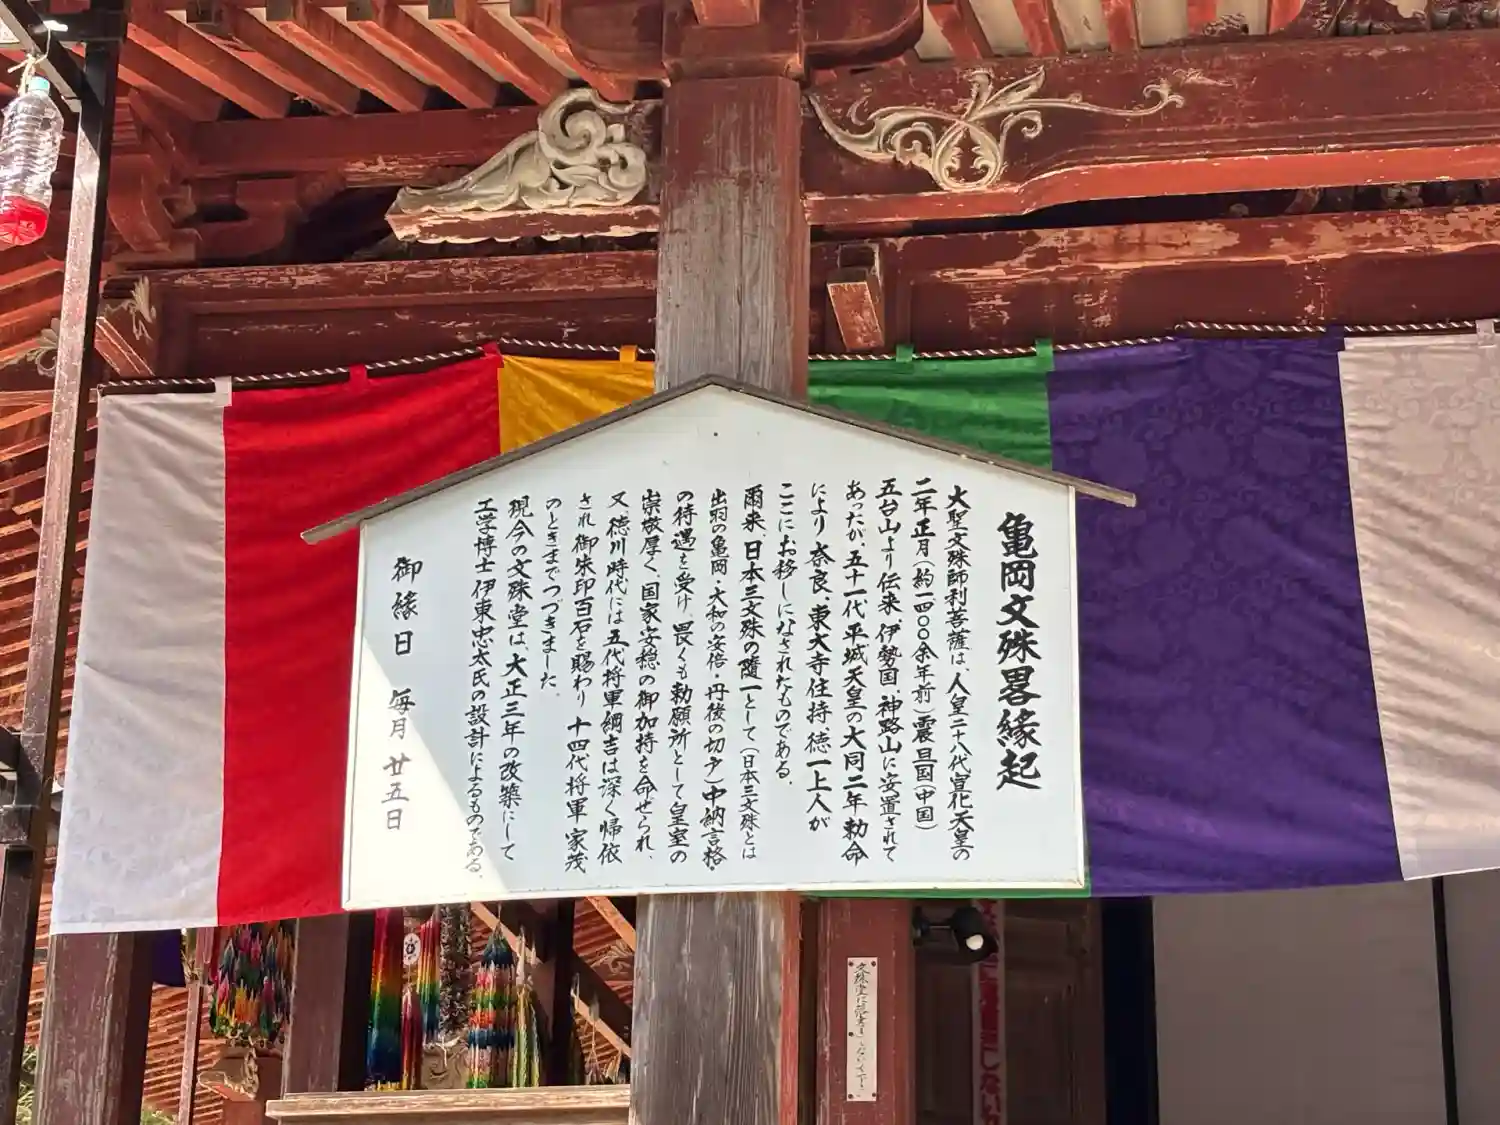 亀岡文殊畧縁起
大聖文殊師利菩薩は、人皇二十八代宣化天皇の
二年正月(約一四〇〇余年前)震旦国(中国)
五台山より伝来、伊勢国、神路山に安置されて
あったが、五十一代平城天皇の大同二年勅命
により奈良、東大寺住持、徳一上人が
ここにお移しになされたものである。
爾来、日本三文殊の随一として(日本三文殊とは
出羽の亀岡・大和の安倍・丹後の切戸)中納言格・
の待遇を受け、畏くも勅願所として皇室の
崇敬厚く、国家安穏の御加持を命せられ、
又徳川時代には五代将軍綱吉は深く帰依
され御朱印百石を賜わり十四代将軍家茂
のときまでつづきました。
現今の文殊堂は、大正三年の改築にして
工学博士伊東忠太氏の設計によるものである。
御縁日 毎月廿五日